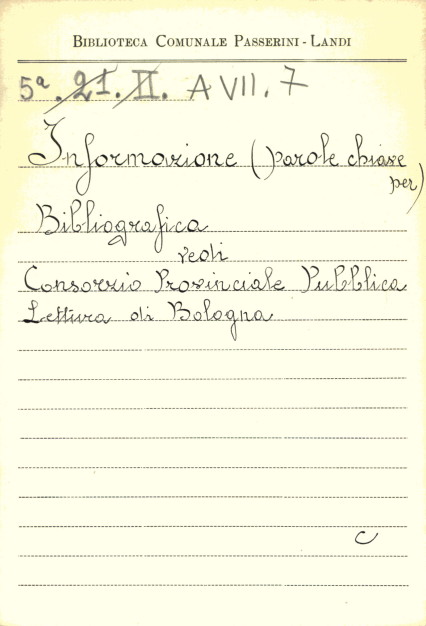 BIBLIOTECA COMUNALE PASSERINI - LANDI
5ª. 21. II. A VII. 7
Informazione (parole chiave
per)
Bibliografica
vedi
Consorzio Provinciale Pubblica
Lettura di Bologna
C